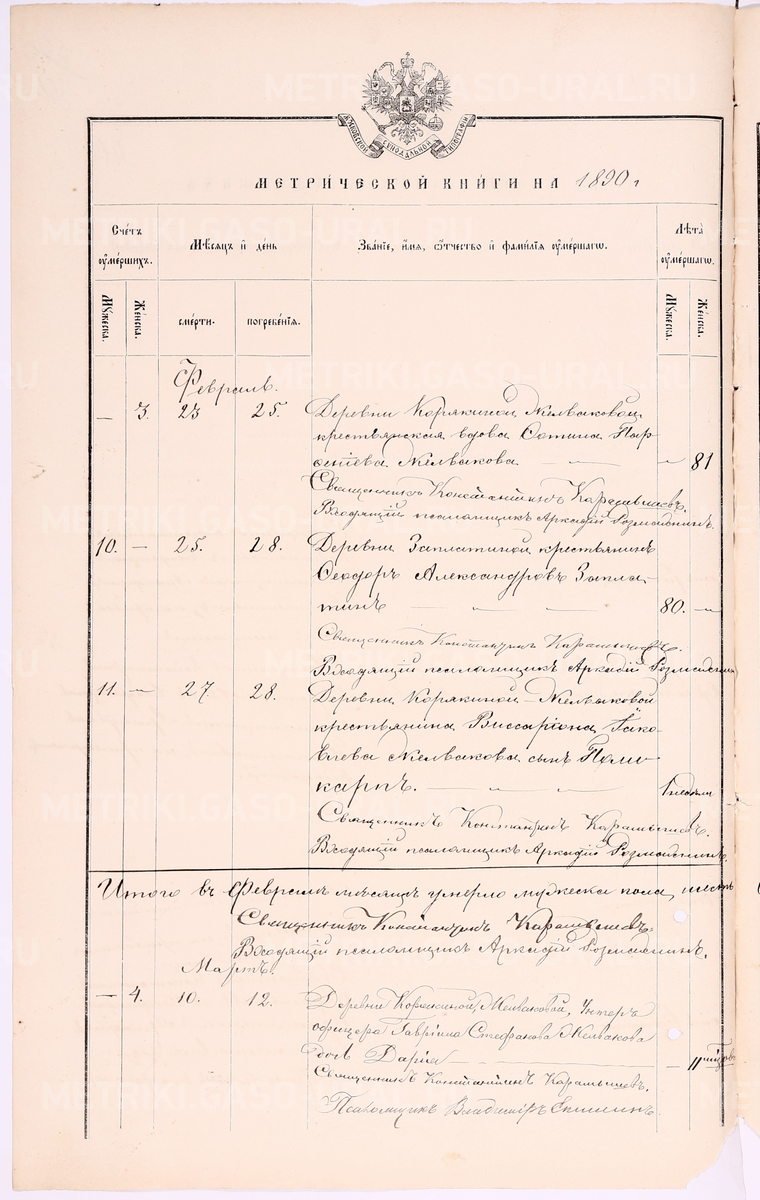 МОСКОВСКОЙ СѴНОДАЛЬНОЙ ТИПОГРАФІИ
МЕТРИЧЕСКОЙ КНИГИ НА 1890 г
Счетъ умершихъ. Мѣсяцъ и день Званіе, имя, отчество и фамилія умершаго. Лѣта умершаго.
Мужеска. Женска. смерти. погребенія. Мужеска. Женска.
Февраль.
— 3. 23 25. Деревни Корякиной Желваковой
крестьянская вдова Фотина Пар
ѳеніева Желвакова — 81
Священникъ Константинъ Карамышевъ.
Входящій псаломщикъ Аркадій
10. — 25. 28. Деревни Заплатиной крестьянинъ
Ѳеодоръ Александровъ Запла-
тинъ — 80. —
Священникъ Константинъ Карамышевъ.
Входящій псаломщикъ Аркадій
11. — 27 28. Деревни Корякиной-Желваковой
крестьянина Виссаріона Іако-
влева Желвакова сынъ Поли-
карпъ. —
Священникъ Константинъ Карамышевъ.
Входящій псаломщикъ Аркадій
Итого въ Февралѣ мѣсяцѣ умерло мужеска пола шесть
Священникъ Константинъ Карамышевъ.
Входящій псаломщикъ Аркадій
Мартъ.
— 4. 10. 12. Деревни Корякиной, Желваковой, Унтеръ
офицера Гавріила Стефанова Желвакова
дочь Дарія — 11
Священникъ Константинъ Карамышевъ.
Псаломщикъ Владиміръ
METRIKI.GASO-URAL.RU